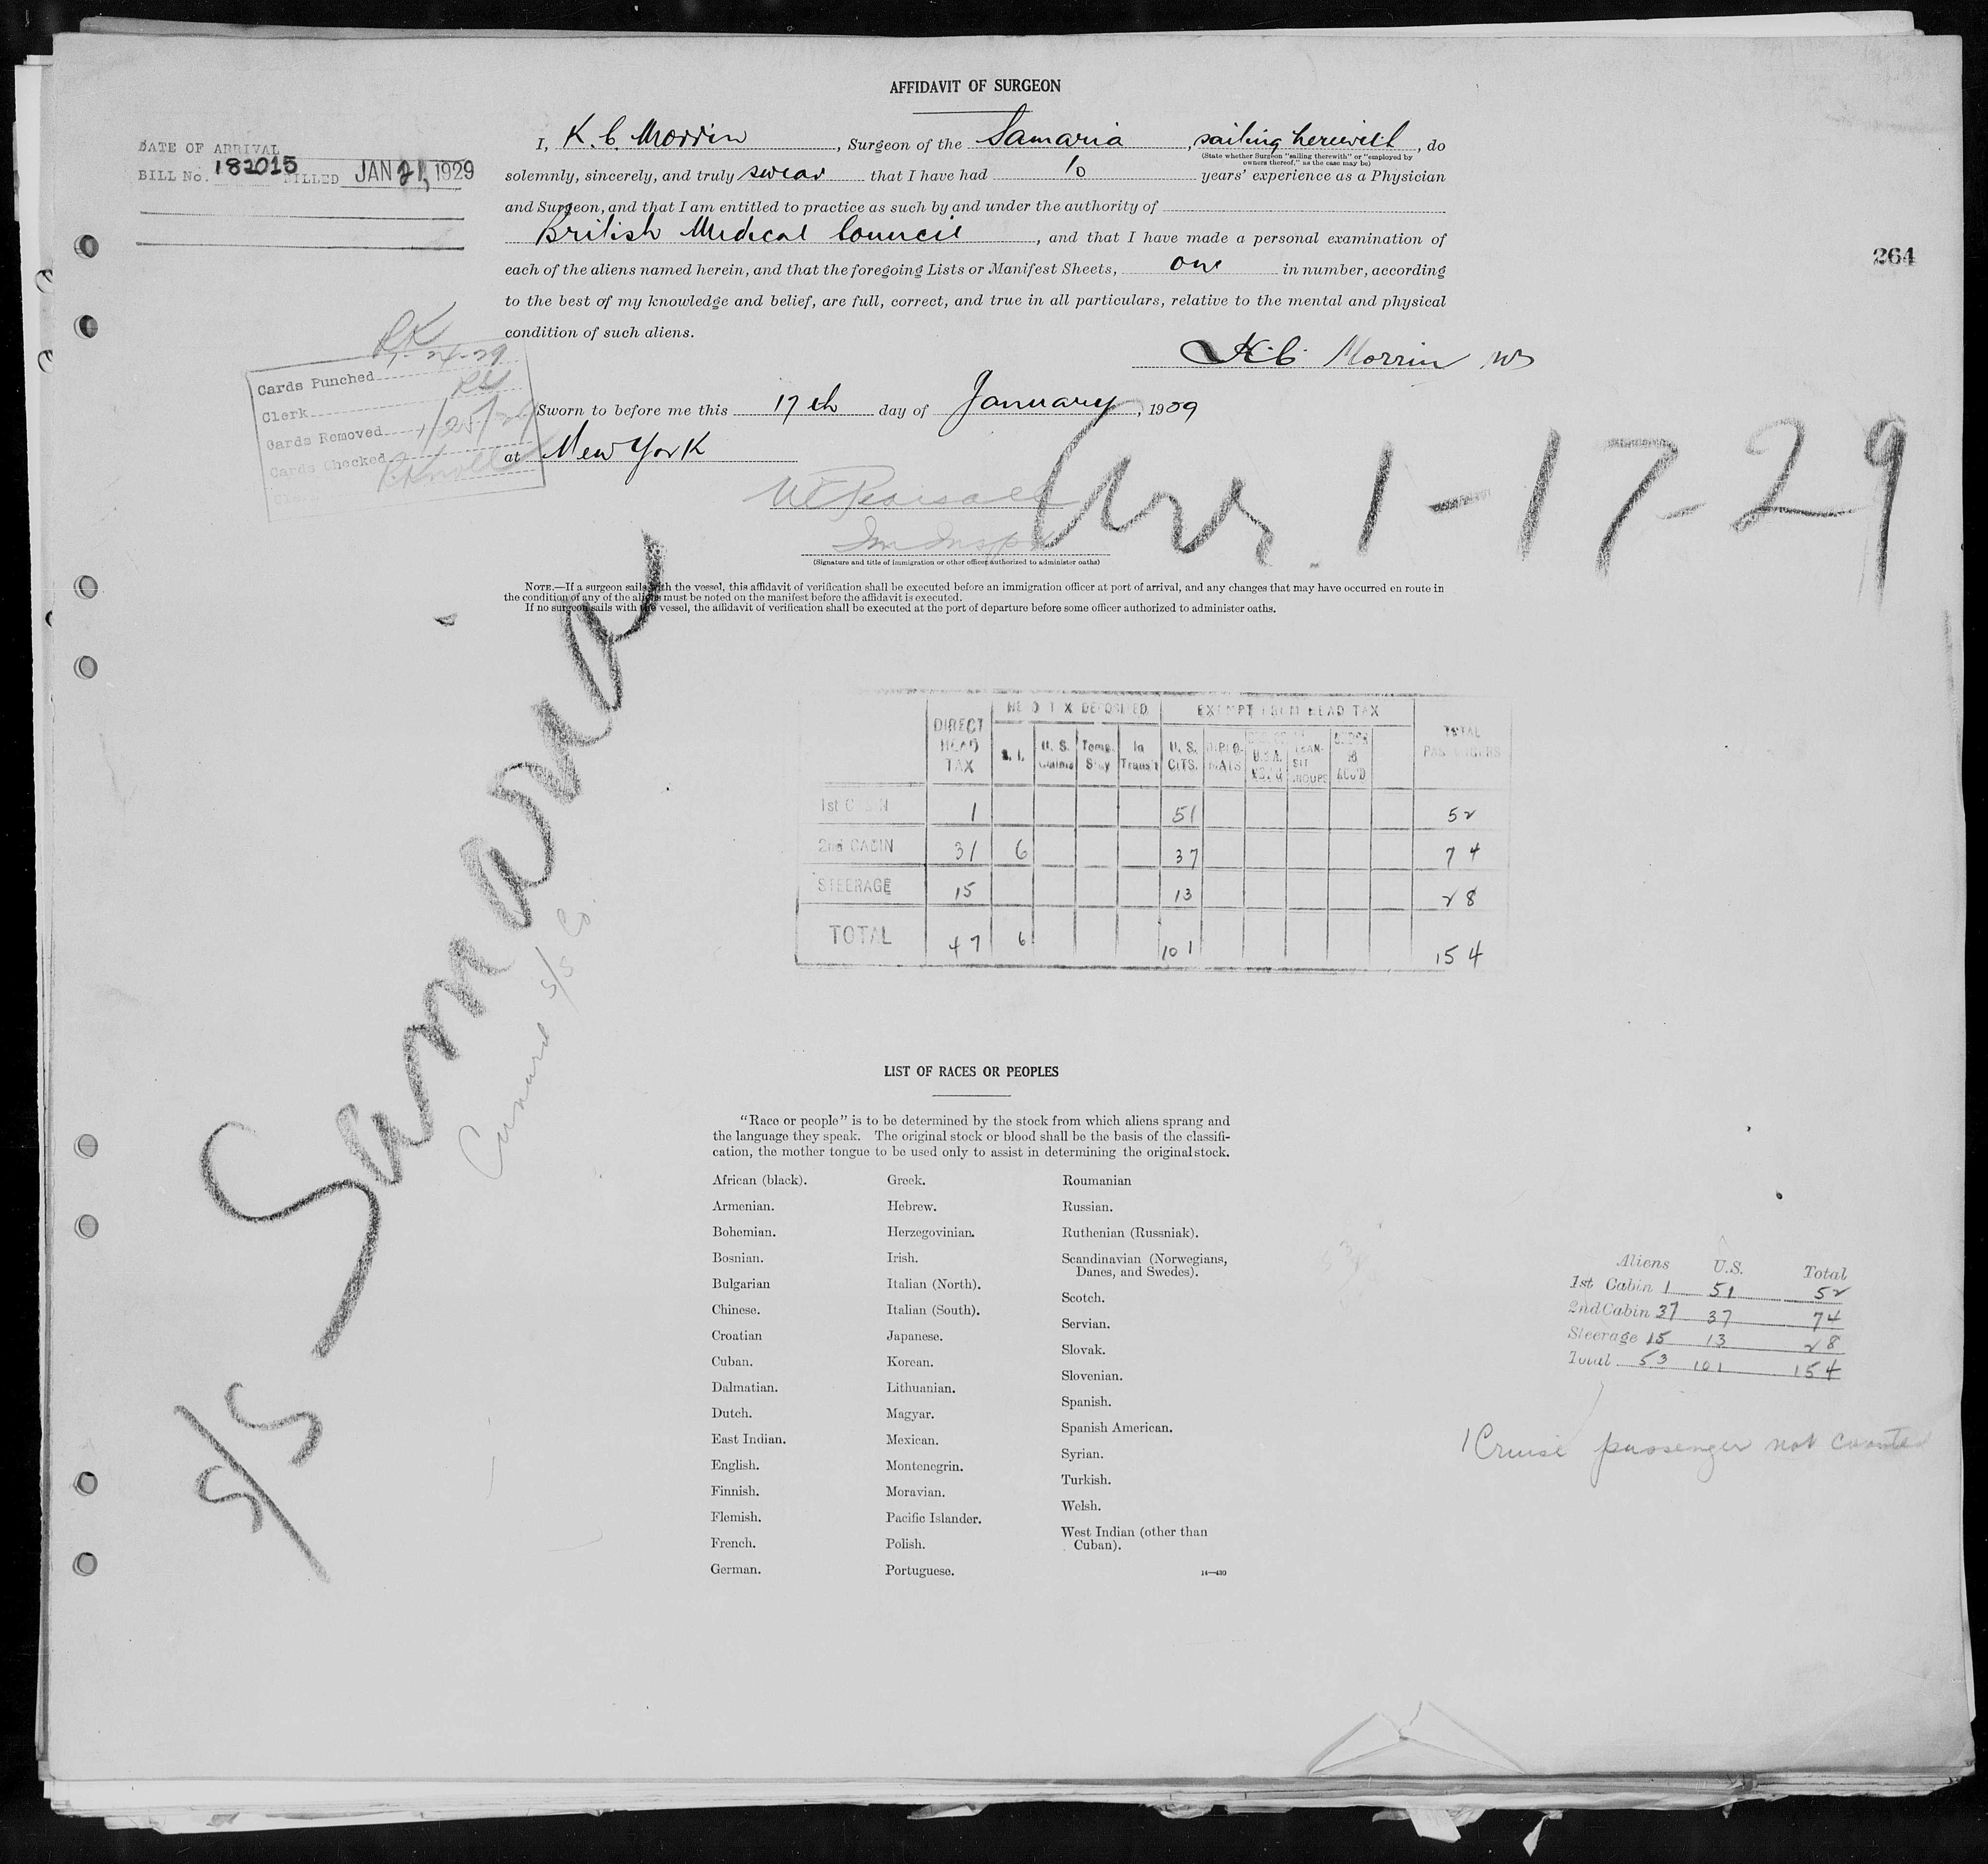 AFFIDAVIT OF SURGEON
DATE OF ARRIVAL
BILL No. 182015 BILLED JAN 21, 1929
I, K. C. Morrin, Surgeon of the Samaria, sailing herewith, do
(State whether Surgeon "sailing therewith" or "employed by
owners thereof," as the case may be)
solemnly, sincerely, and truly swear that I have had 10 years' experience as a Physician
and Surgeon, and that I am entitled to practice as such by and under the authority of
British Medical Council, and that I have made a personal examination of
each of the aliens named herein, and that the foregoing Lists or Manifest Sheets, one in number, according
to the best of my knowledge and belief, are full, correct, and true in all particulars, relative to the mental and physical
condition of such aliens.
264
K. C. Morrin
Cards Punched
Clerk
Cards Removed
Cards Checked
Clerk
Sworn to before me this 17th day of January, 1909
at New York
Arr. 1-17-29
(Signature and title of immigration or other officer authorized to administer oaths)
NOTE.—If a surgeon sails with the vessel, this affidavit of verification shall be executed before an immigration officer at port of arrival, and any changes that may have occurred en route in
the condition of any of the aliens must be noted on the manifest before the affidavit is executed.
If no surgeon sails with the vessel, the affidavit of verification shall be executed at the port of departure before some officer authorized to administer oaths.
S/S Samaria
Cunard S/S Co.
HEAD TAX DEPOSITED EXEMPT FROM HEAD TAX
DIRECT HEAD TAX S. I. U. S. Claims Temp. Stay In Transit U. S. CITS. DIPLOMATS TRANSIT GROUPS UNDER 16 ACC'D TOTAL PASSENGERS
1st CABIN 1 51 52
2nd CABIN 31 6 37 74
STEERAGE 15 13 28
TOTAL 47 6 101 154
LIST OF RACES OR PEOPLES
"Race or people" is to be determined by the stock from which aliens sprang and
the language they speak. The original stock or blood shall be the basis of the classifi-
cation, the mother tongue to be used only to assist in determining the original stock.
African (black).
Armenian.
Bohemian.
Bosnian.
Bulgarian
Chinese.
Croatian
Cuban.
Dalmatian.
Dutch.
East Indian.
English.
Finnish.
Flemish.
French.
German.
Greek.
Hebrew.
Herzegovinian.
Irish.
Italian (North).
Italian (South).
Japanese.
Korean.
Lithuanian.
Magyar.
Mexican.
Montenegrin.
Moravian.
Pacific Islander.
Polish.
Portuguese.
Roumanian
Russian.
Ruthenian (Russniak).
Scandinavian (Norwegians,
Danes, and Swedes).
Scotch.
Servian.
Slovak.
Slovenian.
Spanish.
Spanish American.
Syrian.
Turkish.
Welsh.
West Indian (other than
Cuban).
14—430
Aliens U.S. Total
1st Cabin 1 51 52
2nd Cabin 37 37 74
Steerage 15 13 28
Total 53 101 154
1 Cruise passenger not counted